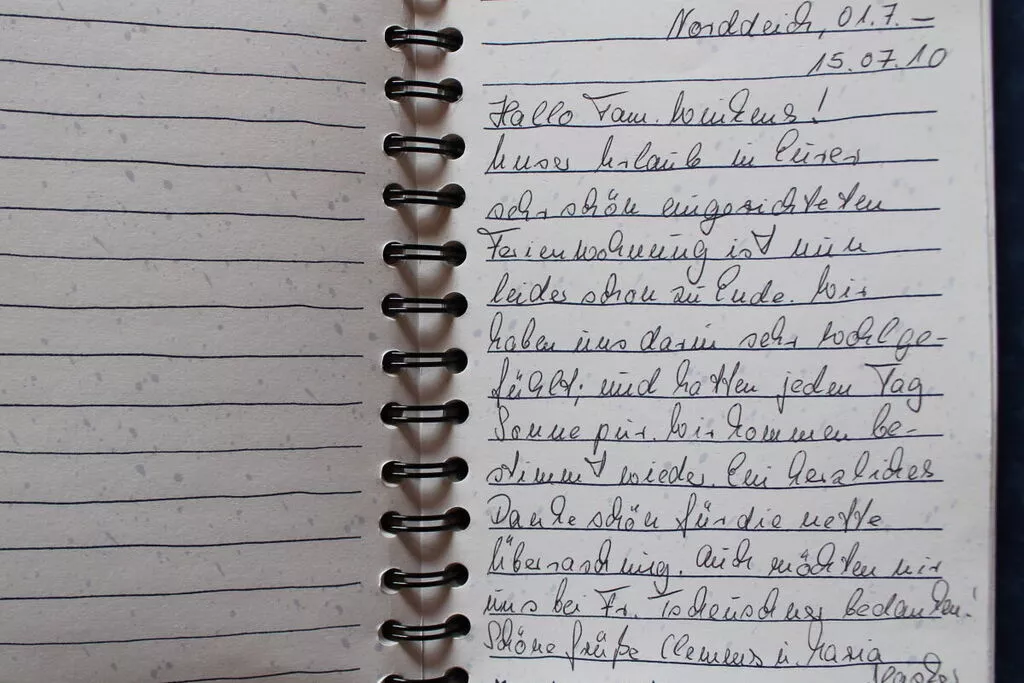 Norddeich, 01.7. –
15.07.10
Hallo Fam.
Unser Urlaub in Eurer
sehr schön eingerichteten
Ferienwohnung ist nun
leider schon zu Ende. Wir
haben uns darin sehr wohlge-
fühlt; und hatten jeden Tag
Sonne pur. Wir kommen be-
stimmt wieder. Ein herzliches
Dankeschön für die nette
Überraschung. Auch möchten wir
uns bei Fr. bedanken!
Schöne Grüße Clemens u. Maria